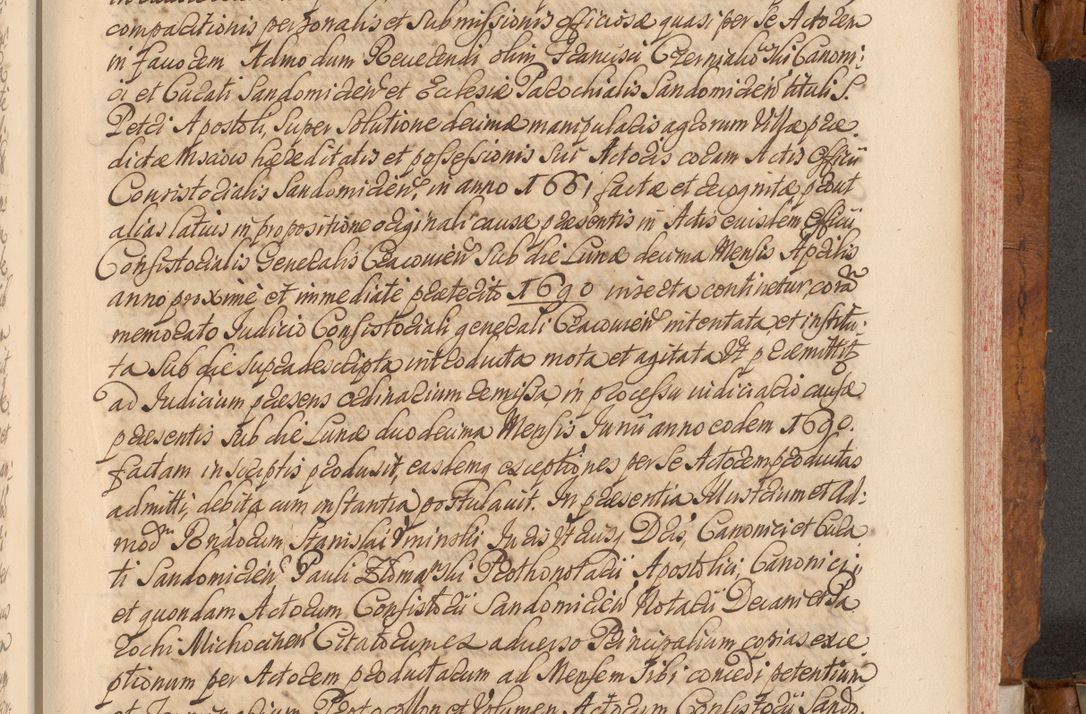 compactionis personalis et submissionis officiosæ quasi per se Actorem
in favorem Admodum Reverendi olim Francisci Czerniakowski Canoni:
ci et Curati Sandomirien et Ecclesiæ Parochialis Sandomirien tituli S.
Petri Apostoli, super solutione decimæ manipularis agrorum Villæ præ
dictæ hæreditatis et possessionis sui Actoris coram Actis Officii
Consistorialis Sandomirien, in anno 1661 factæ et recognitæ, prout
alias latius in propositione originali causæ præsentis in Actis eiusdem Officii
Consistorialis Generalis Cracovien sub die Lunæ decima Mensis Aprilis
anno proxime et immediate præterito 1690 inserta continetur, corã
memorato Iudicio Consistoriali generali Cracovien intentata et institu:
ta sub die supradescripta introducta mota et agitata Et præmittit
ad Iudicium præsens ordinarium remissa, in processu iudiciario causæ
præsentis sub die Lunæ duodecima Mensis Iunii anno eodem 1690.
factam in scriptis produxit, easdemq exceptiones per se Actorem productas
admitti, debita cum instantia postulavit. In præsentia Illustrium et Ad:
mod Rndorum, Stanislai Canonici et Cura
ti Sandomirien Pauli Prothonotarii Apostolici, Canonici,
et quondam Actorum Consistorii Sandomirien Notarii Decani et Pa
rochi Michocinen Citatorum ex adverso Principalium copias exce
ptionum per Actorem productarum ad Mensem sibi concedi petentium
et Principalium Prothocollon et Volumen Actorum Consistorii Sand.